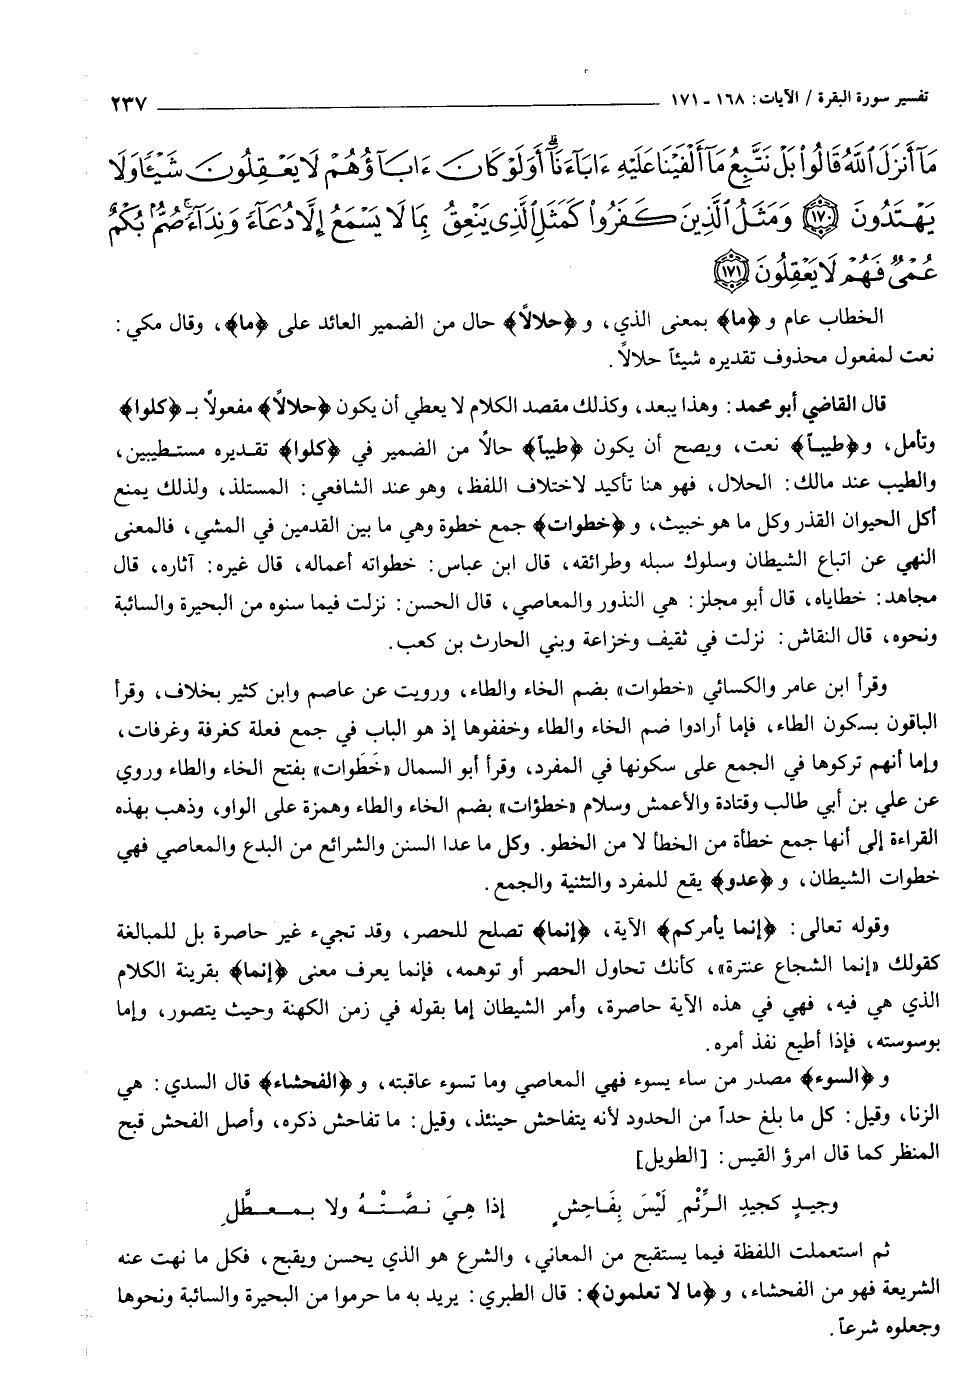 تفسير سورة البقرة / الآيات: ١٦٨ ـ ١٧١ ٢٣٧
مَآ أَنزَلَ ٱللَّهُ قَالُوا۟ بَلْ نَتَّبِعُ مَآ أَلْفَيْنَا عَلَيْهِ ءَابَآءَنَآ ۗ أَوَلَوْ كَانَ ءَابَآؤُهُمْ لَا يَعْقِلُونَ شَيْـًٔا وَلَا
يَهْتَدُونَ ١٧٠ وَمَثَلُ ٱلَّذِينَ كَفَرُوا۟ كَمَثَلِ ٱلَّذِى يَنْعِقُ بِمَا لَا يَسْمَعُ إِلَّا دُعَآءً وَنِدَآءً ۚ صُمٌّۢ بُكْمٌ
عُمْىٌ فَهُمْ لَا يَعْقِلُونَ ١٧١
الخطاب عام و ﴿ما﴾ بمعنى الذي، و ﴿حلالاً﴾ حال من الضمير العائد على ﴿ما﴾، وقال مكي:
نعت لمفعول محذوف تقديره شيئاً حلالاً.
قال القاضي أبو محمد: وهذا يبعد، وكذلك مقصد الكلام لا يعطي أن يكون ﴿حلالاً﴾ مفعولاً بـ ﴿كلوا﴾
وتأمل، و﴿طيباً﴾ نعت، ويصح أن يكون ﴿طيباً﴾ حالاً من الضمير في ﴿كلوا﴾ تقديره مستطيبين،
والطيب عند مالك: الحلال، فهو هنا تأكيد لاختلاف اللفظ، وهو عند الشافعي: المستلذ، ولذلك يمنع
أكل الحيوان القذر وكل ما هو خبيث، و ﴿خطوات﴾ جمع خطوة وهي ما بين القدمين في المشي، فالمعنى
النهي عن اتباع الشيطان وسلوك سبله وطرائقه، قال ابن عباس: خطواته أعماله، قال غيره: آثاره، قال
مجاهد: خطاياه، قال أبو مجلز: هي النذور والمعاصي، قال الحسن: نزلت فيما سنوه من البحيرة والسائبة
ونحوه، قال النقاش: نزلت في ثقيف وخزاعة وبني الحارث بن كعب.
وقرأ ابن عامر والكسائي «خطوات» بضم الخاء والطاء، ورويت عن عاصم وابن كثير بخلاف، وقرأ
الباقون بسكون الطاء، فإما أرادوا ضم الخاء والطاء وخففوها إذ هو الباب في جمع فعلة كغرفة وغرفات،
وإما أنهم تركوها في الجمع على سكونها في المفرد، وقرأ أبو السمال «خَطَوات» بفتح الخاء والطاء وروي
عن علي بن أبي طالب وقتادة والأعمش وسلام «خطؤات» بضم الخاء والطاء وهمزة على الواو، وذهب بهذه
القراءة إلى أنها جمع خطأة من الخطأ لا من الخطو. وكل ما عدا السنن والشرائع من البدع والمعاصي فهي
خطوات الشيطان، و ﴿عدو﴾ يقع للمفرد والتثنية والجمع.
وقوله تعالى: ﴿إنما يأمركم﴾ الآية، ﴿إنما﴾ تصلح للحصر، وقد تجيء غير حاصرة بل للمبالغة
كقولك «إنما الشجاع عنترة»، كأنك تحاول الحصر أو توهمه، فإنما يعرف معنى ﴿إنما﴾ بقرينة الكلام
الذي هي فيه، فهي في هذه الآية حاصرة، وأمر الشيطان إما بقوله في زمن الكهنة وحيث يتصور، وإما
بوسوسته، فإذا أطيع نفذ أمره.
و ﴿السوء﴾ مصدر من ساء يسوء فهي المعاصي وما تسوء عاقبته، و ﴿الفحشاء﴾ قال السدي: هي
الزنا، وقيل: كل ما بلغ حداً من الحدود لأنه يتفاحش حينئذ، وقيل: ما تفاحش ذكره، وأصل الفحش قبح
المنظر كما قال امرؤ القيس: [الطويل]
وجيدٍ كجيدِ الرِّئْمِ لَيْسَ بِفَاحِشٍ إذا هِيَ نصَّتْهُ ولا بمعطَّلِ
ثم استعملت اللفظة فيما يستقبح من المعاني، والشرع هو الذي يحسن ويقبح، فكل ما نهت عنه
الشريعة فهو من الفحشاء، و ﴿ما لا تعلمون﴾: قال الطبري: يريد به ما حرموا من البحيرة والسائبة ونحوها
وجعلوه شرعاً.